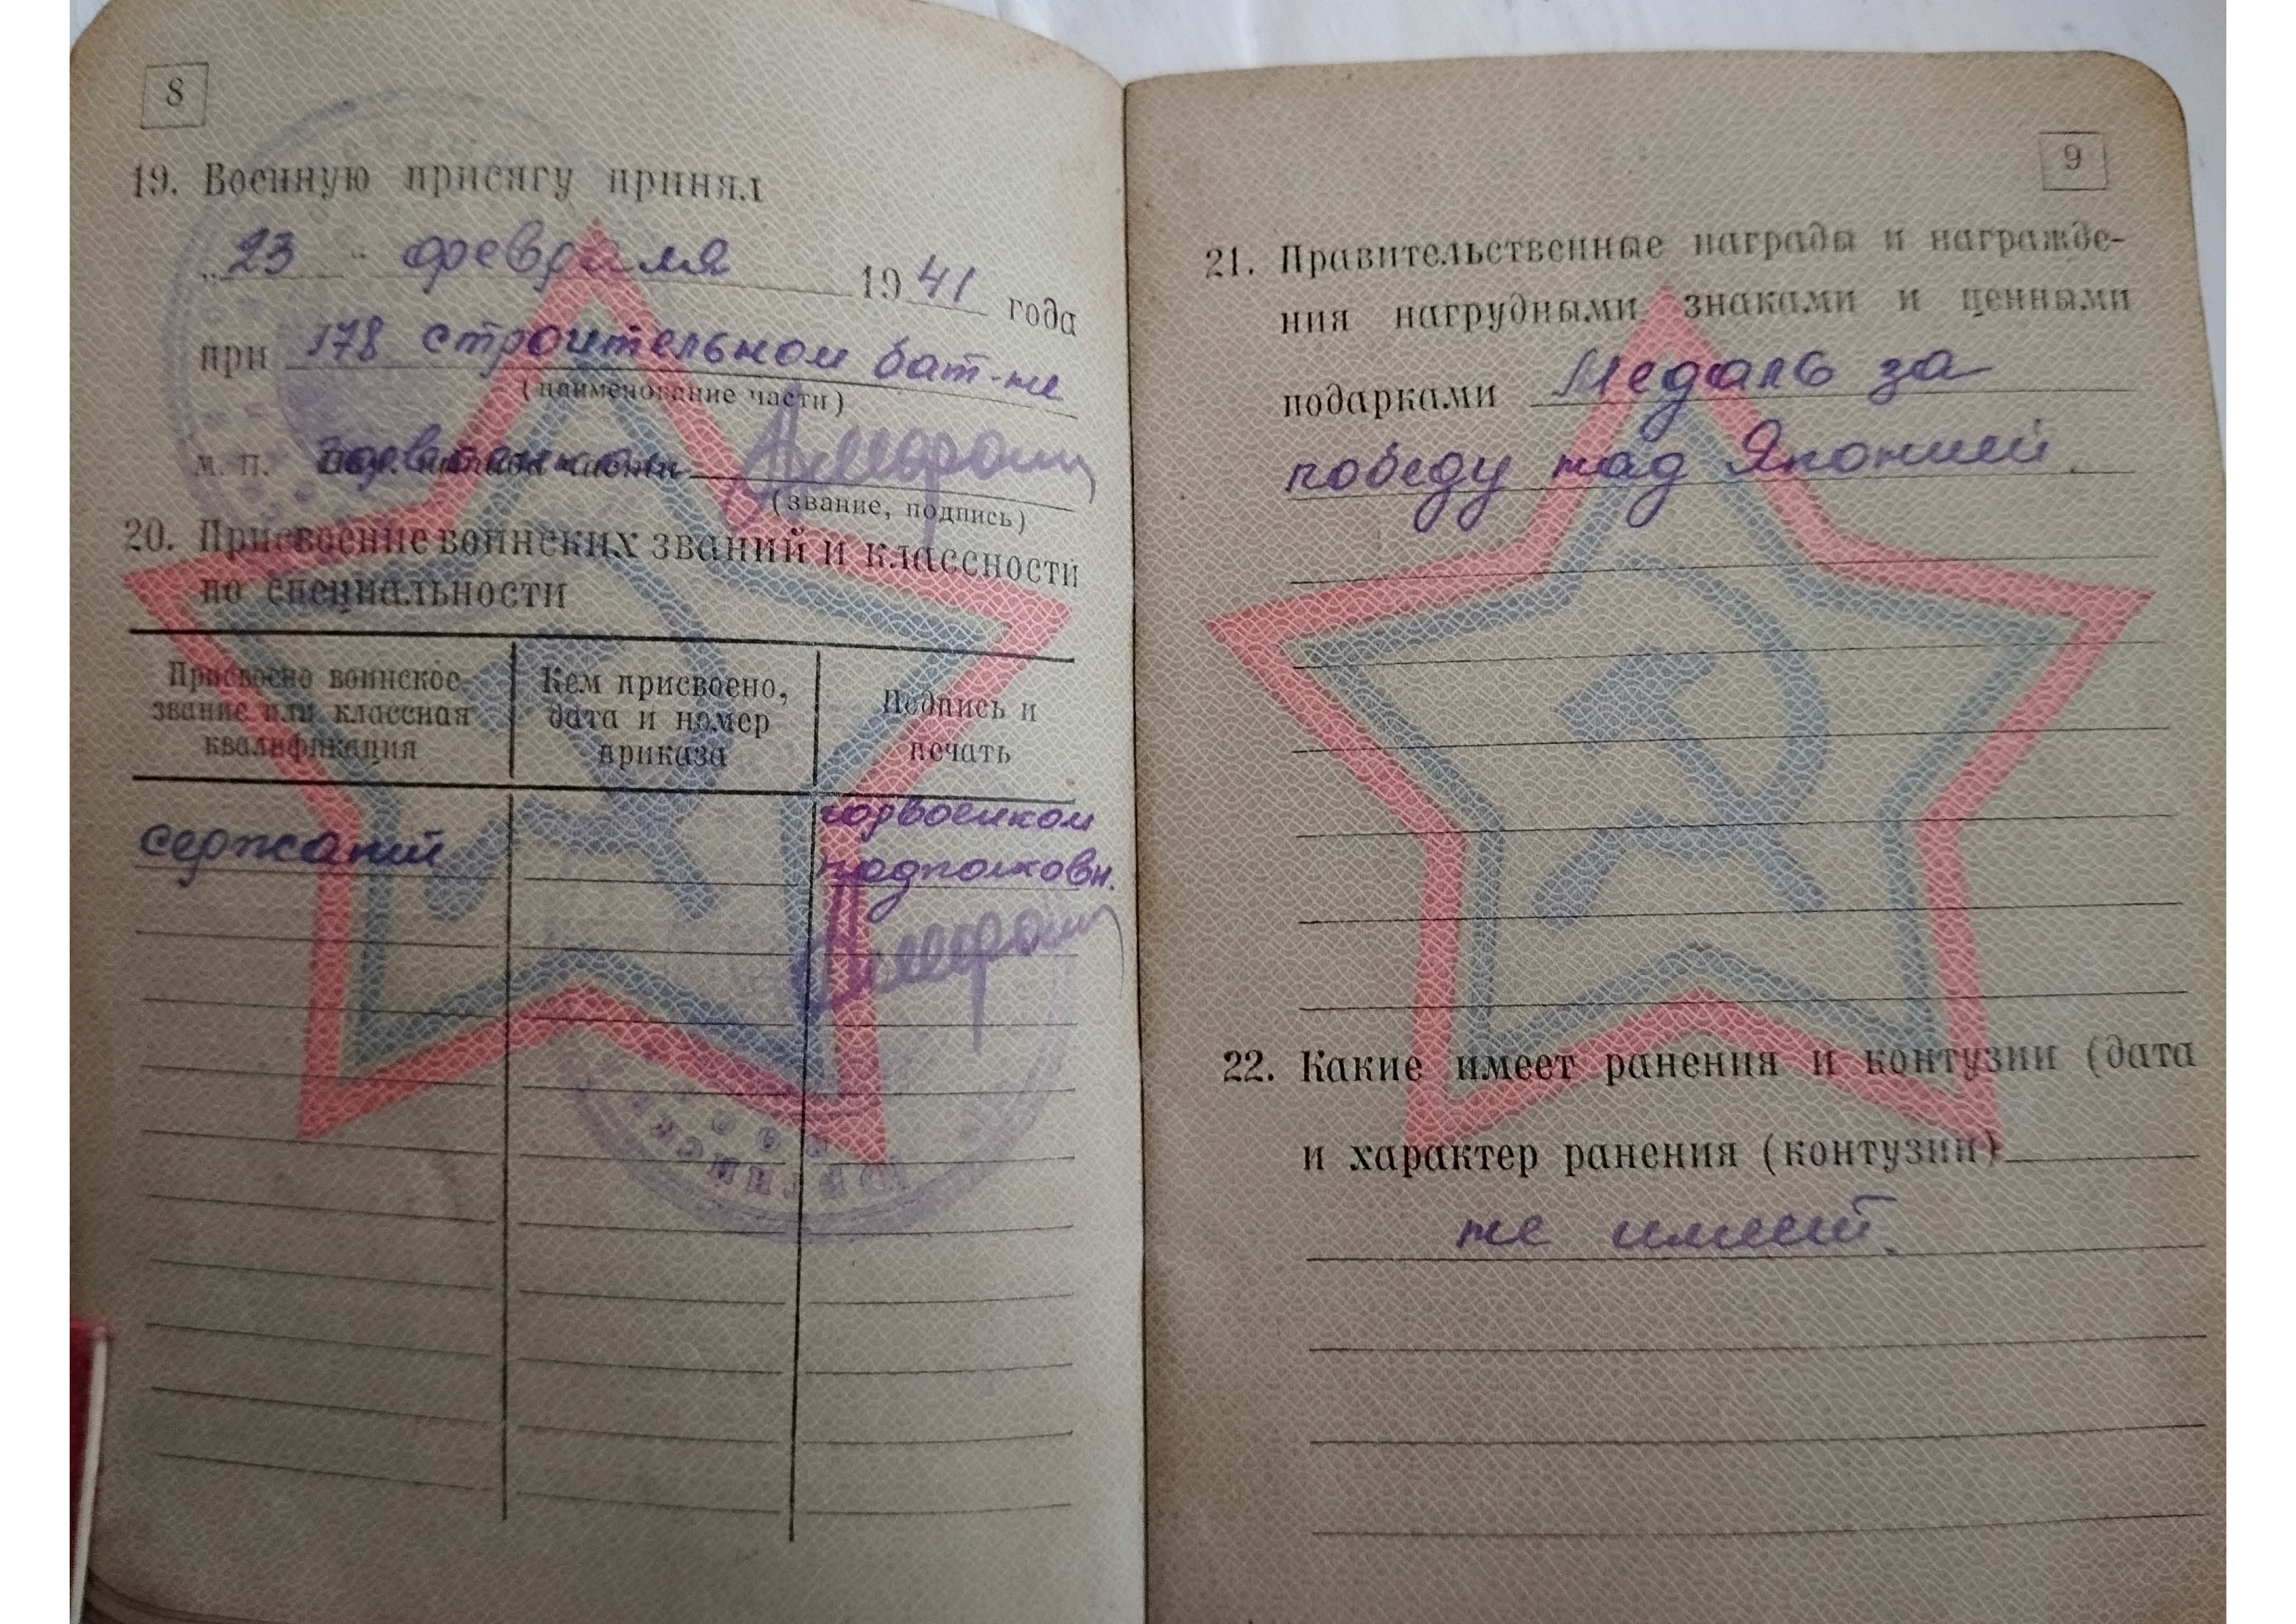 8
19. Военную присягу принял
„23“ февраля 1941 года
при 178 строительном бат-не
(наименование части)
м. п.
(звание, подпись)
20. Присвоение воинских званий и классности
по специальности
Присвоено воинское
звание или классная
квалификация
Кем присвоено,
дата и номер
приказа
Подпись и
печать
сержант
горвоенком
подполковн.
9
21. Правительственные награды и награжде-
ния нагрудными знаками и ценными
подарками Медаль за
победу над Японией.
22. Какие имеет ранения и контузии (дата
и характер ранения (контузии)
не имеет.